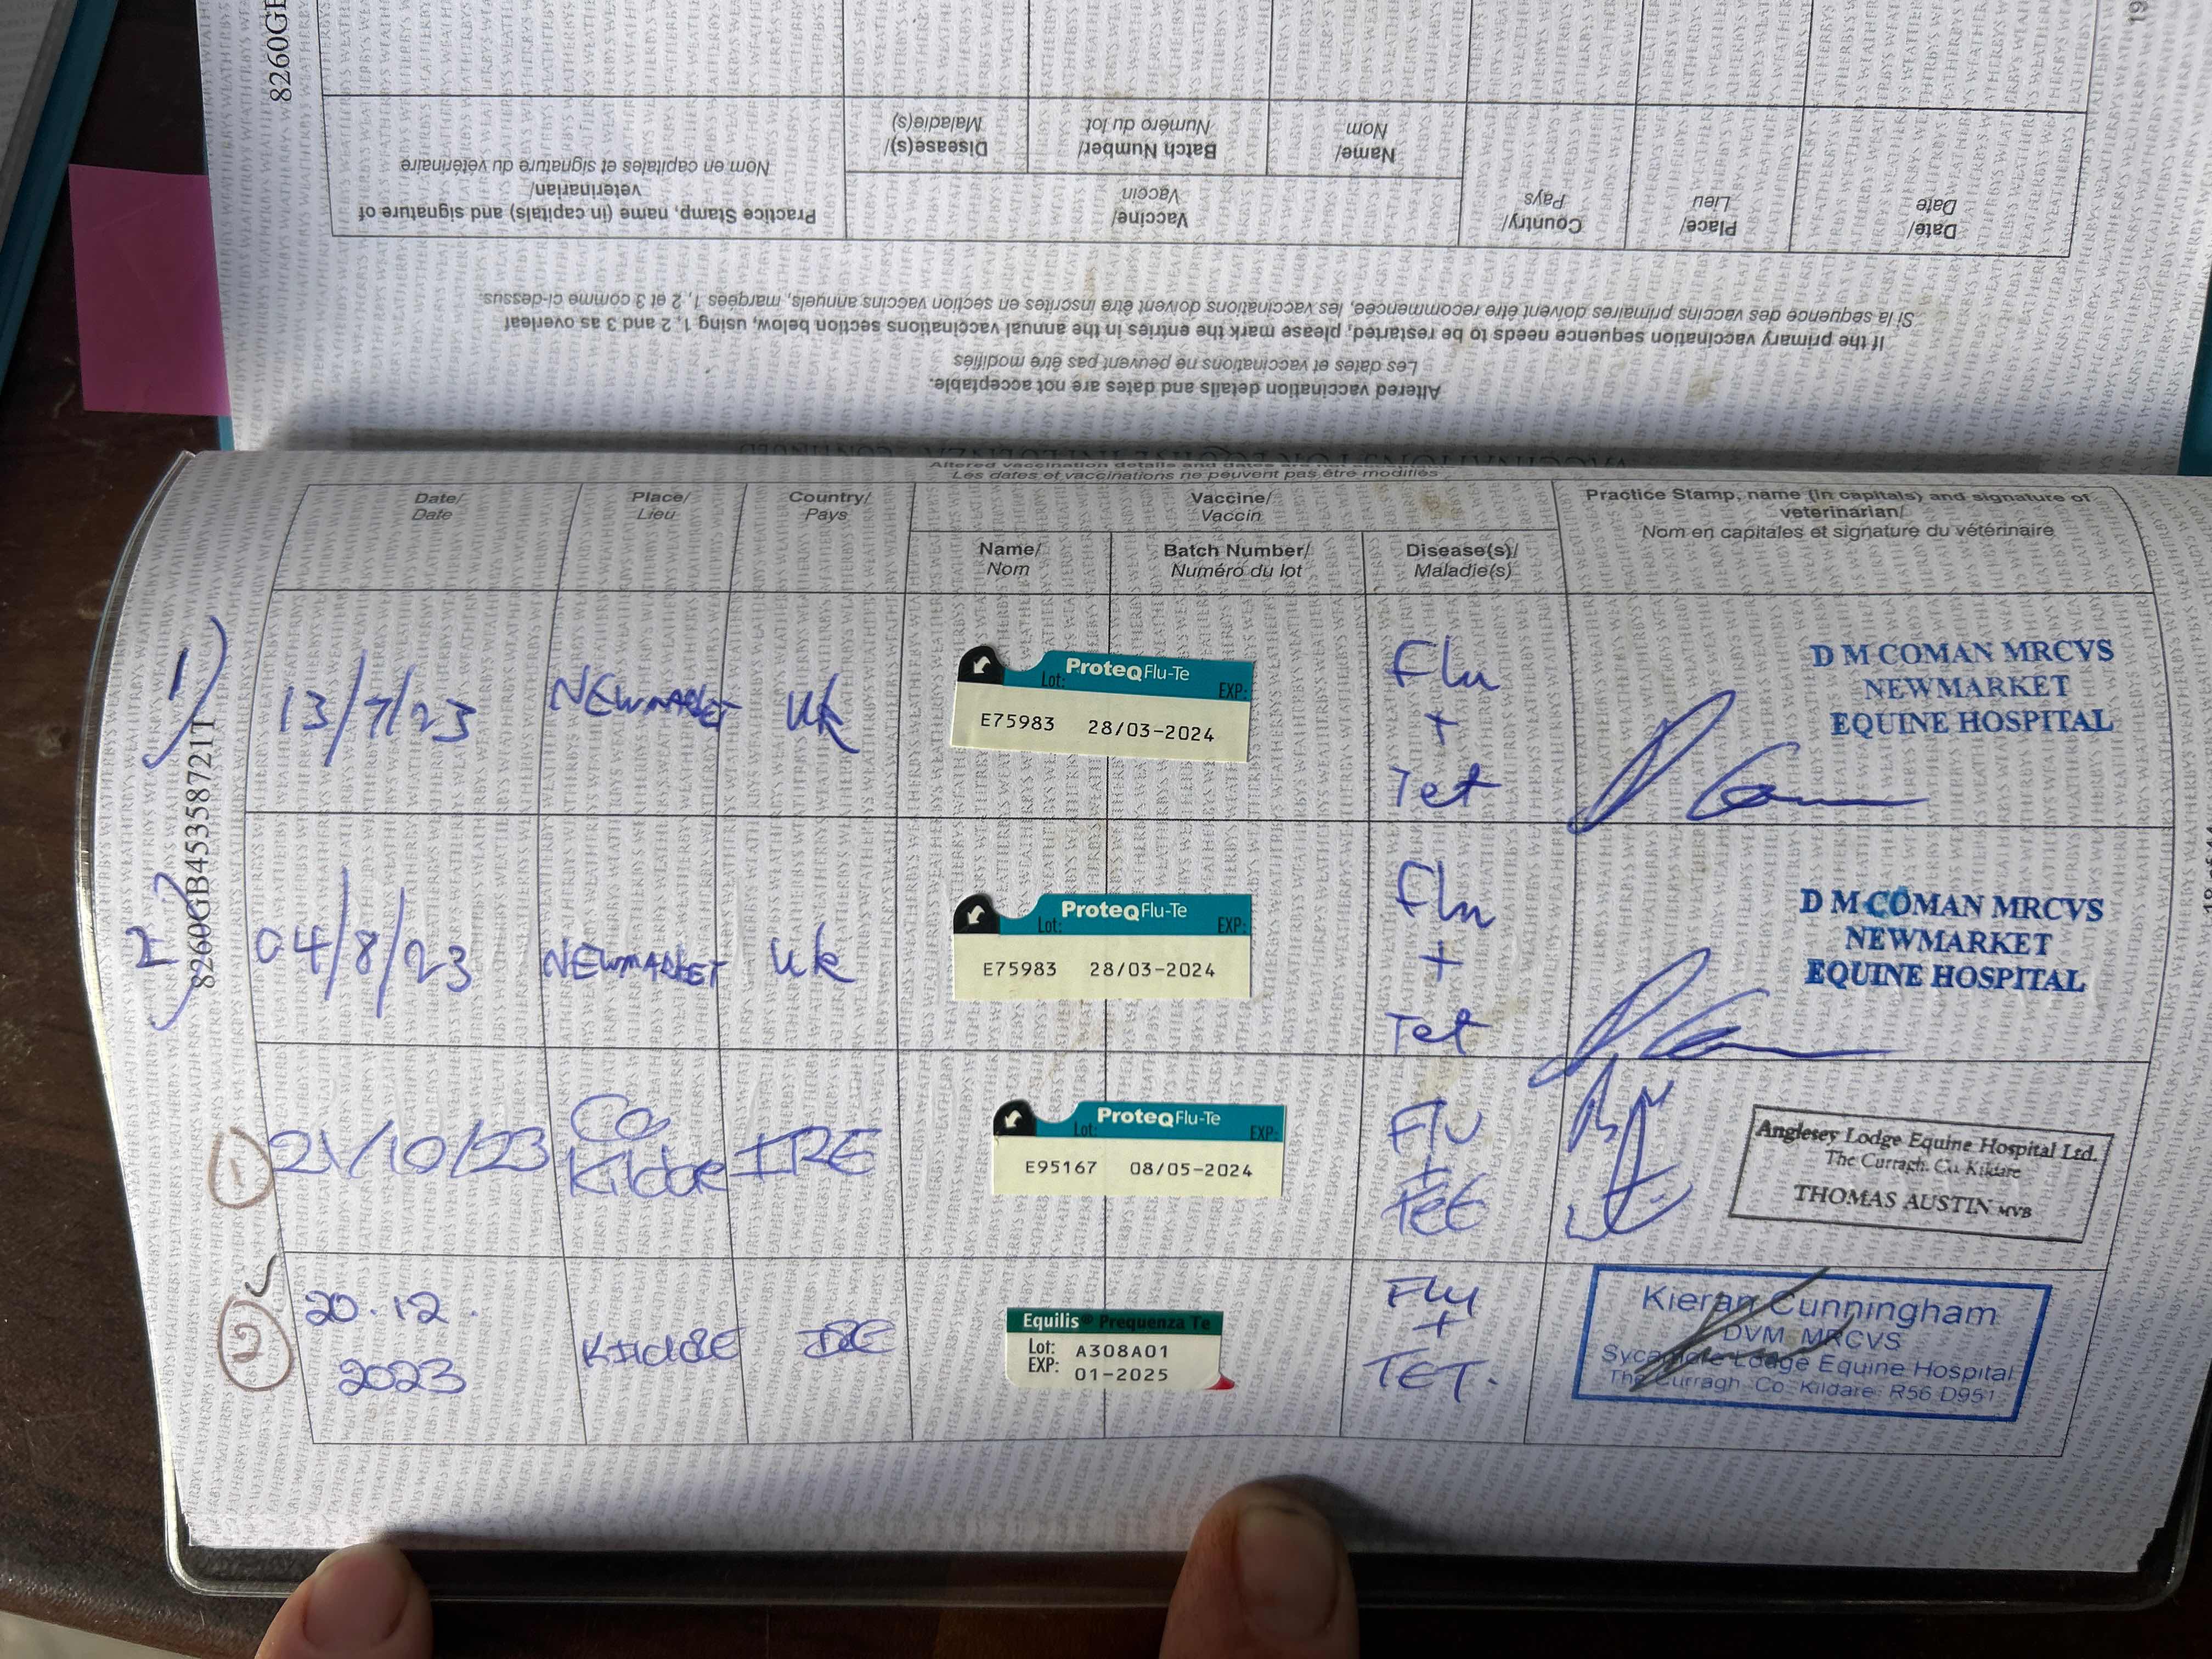 8260GB
19
Practice Stamp, name (in capitals) and signature of
veterinarian/
Nom en capitales et signature du vétérinaire
Disease(s)/
Maladie(s)
Batch Number/
Numéro du lot
Name/
Nom
Vaccine/
Vaccin
Country/
Pays
Place/
Lieu
Date/
Date
If the primary vaccination sequence needs to be restarted, please mark the entries in the annual vaccinations section below, using 1, 2 and 3 as overleaf
Si la séquence des vaccins primaires doivent être recommencée, les vaccinations doivent être inscrites en section vaccins annuels, marqées 1, 2 et 3 comme ci-dessus.
Altered vaccination details and dates are not acceptable.
Les dates et vaccinations ne peuvent pas être modifiés
Altered vaccination details and dates are
Les dates et vaccinations ne peuvent pas être modifiés
Date/
Date
Place/
Lieu
Country/
Pays
Vaccine/
Vaccin
Name/
Nom
Batch Number/
Numéro du lot
Disease(s)/
Maladie(s)
Practice Stamp, name (in capitals) and signature of
veterinarian/
Nom en capitales et signature du vétérinaire
8260GB45358721T
1)
13/7/23
NEWMARKET
UK
ProteqFlu-Te
Lot: EXP:
E75983 28/03-2024
Flu
+
Tet
D M COMAN MRCVS
NEWMARKET
EQUINE HOSPITAL
2)
04/8/23
NEWMARKET
UK
ProteqFlu-Te
Lot: EXP:
E75983 28/03-2024
Flu
+
Tet
D M COMAN MRCVS
NEWMARKET
EQUINE HOSPITAL
1
21/10/23
Co
Kildare
IRE
ProteqFlu-Te
Lot: EXP:
E95167 08/05-2024
FLU
+
TET
Anglesey Lodge Equine Hospital Ltd.
The Curragh. Co. Kildare
THOMAS AUSTIN MVB
2
20.12.
2023
KILDARE
IRE
Equilis® Prequenza Te
Lot: A308A01
EXP: 01-2025
FLU
+
TET.
Kieran Cunningham
DVM MRCVS
Sycamore Lodge Equine Hospital
The Curragh Co. Kildare R56 D951